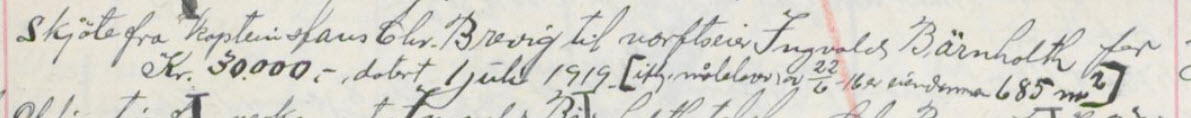 Skjöte fra Kaptein Hans Chr. Brevig til verftseier Ingvald Bärnholth for
Kr. 30.000,-, datert 1 juli 1919. [ifg. målebrev av 22/6-16 er eiendommen 685 m²]